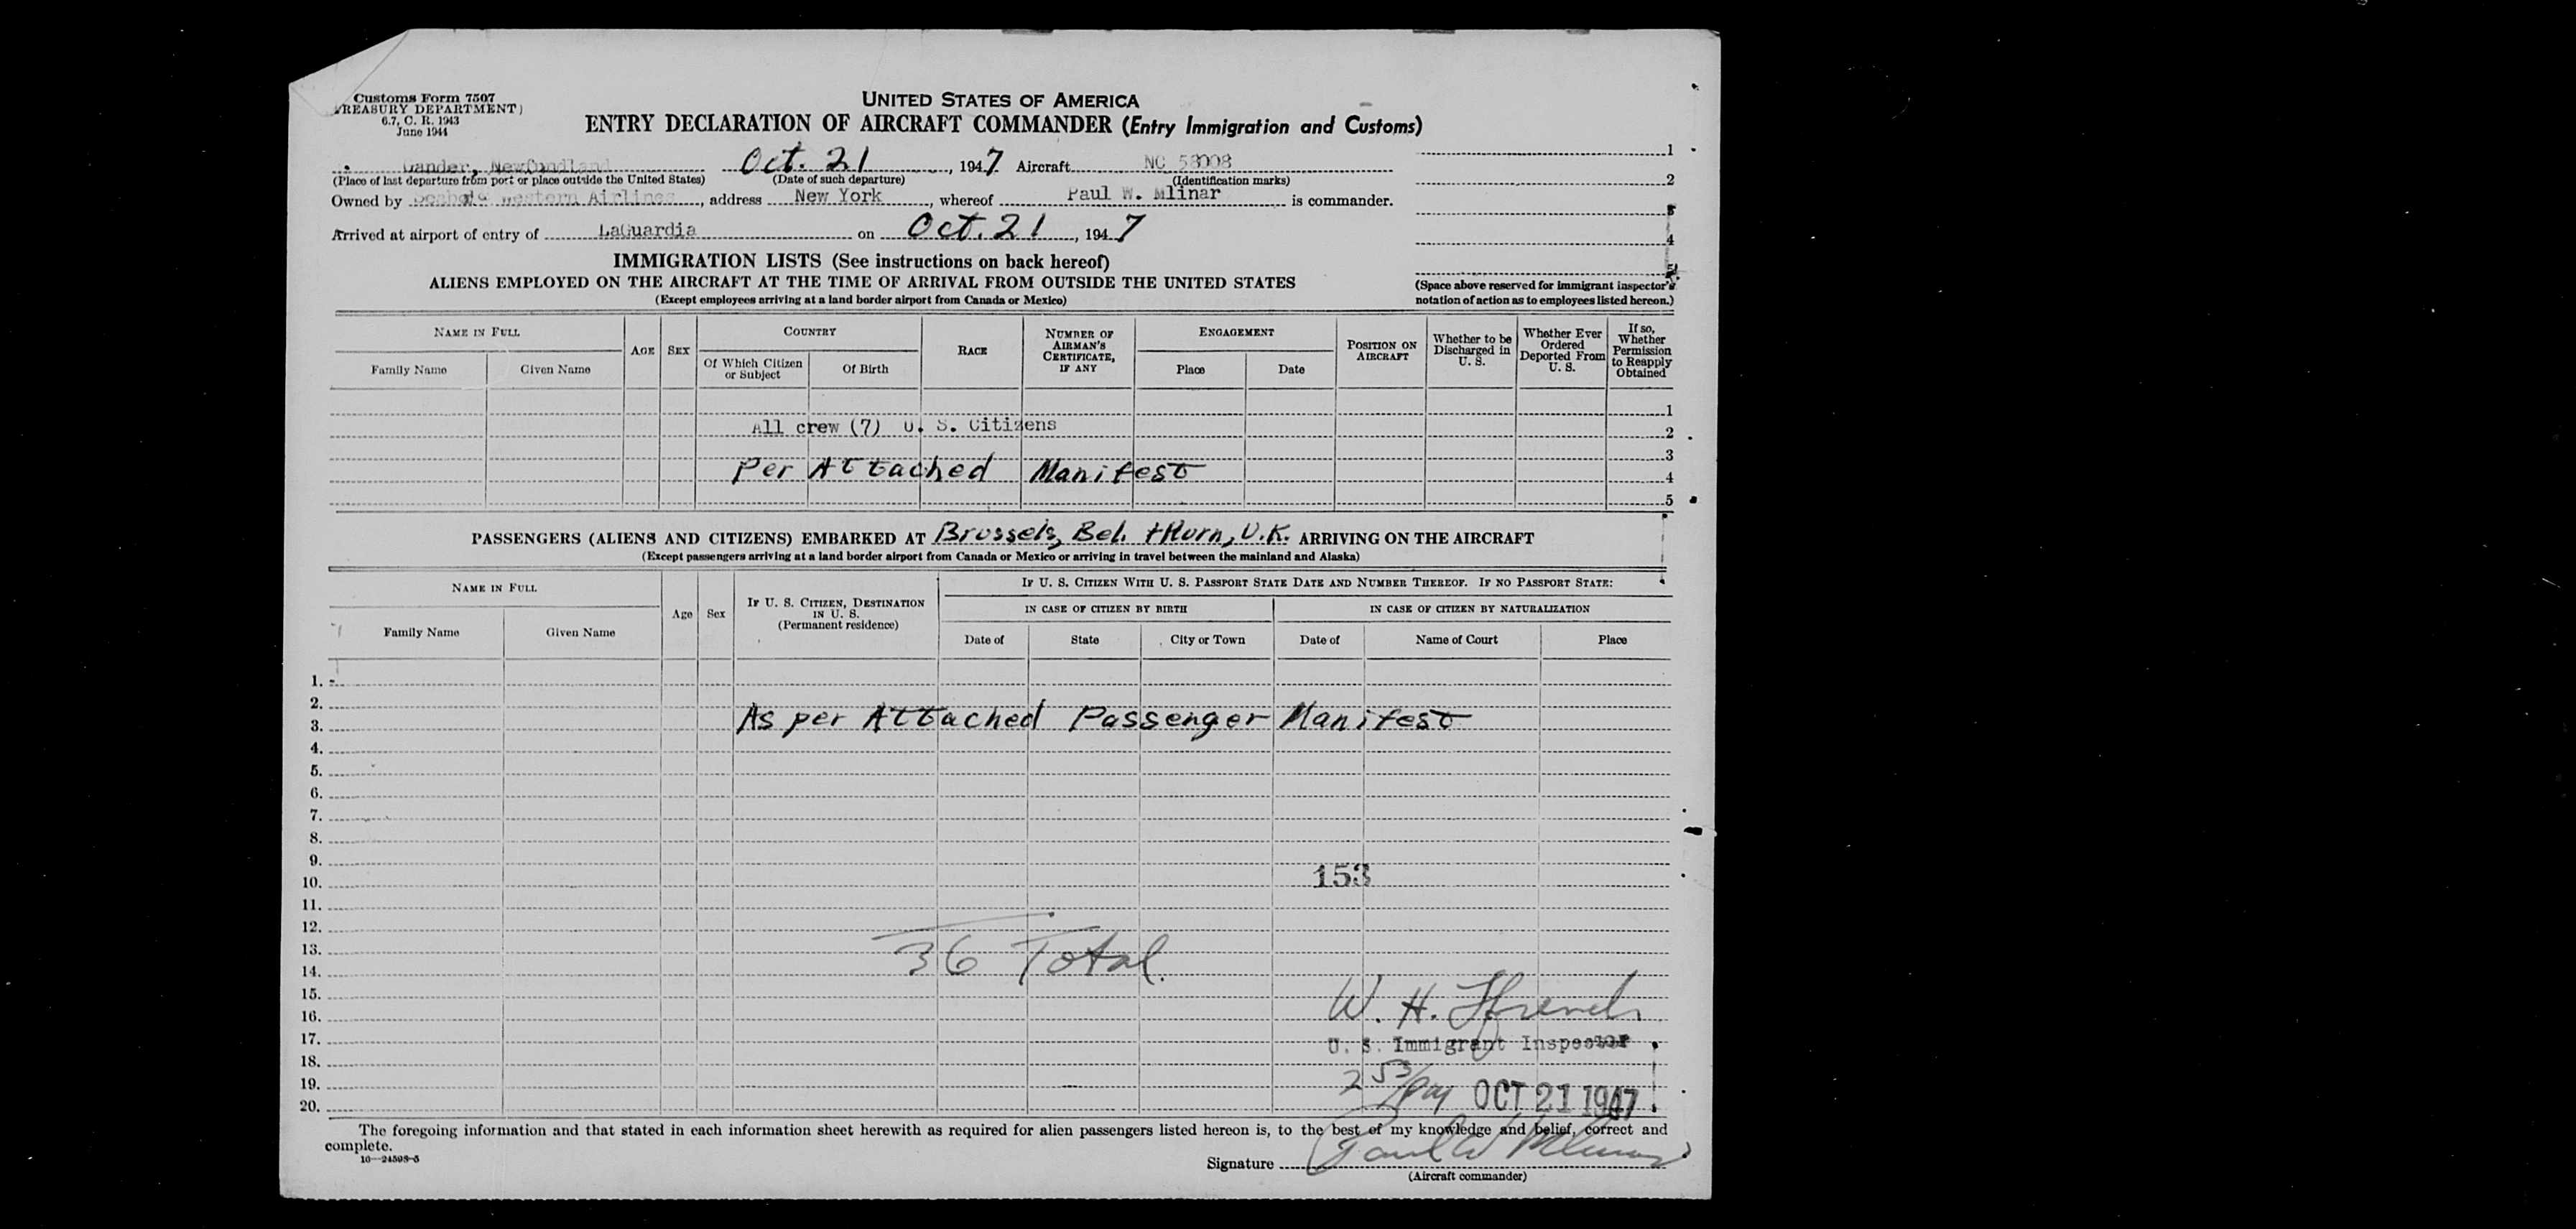 Customs Form 7507
(TREASURY DEPARTMENT)
6.7, C. R. 1943
June 1944
UNITED STATES OF AMERICA
ENTRY DECLARATION OF AIRCRAFT COMMANDER (Entry Immigration and Customs)
Gander, Newfoundland Oct. 21, 1947 Aircraft NC
(Place of last departure from port or place outside the United States) (Date of such departure) (Identification marks)
Owned by Western Airlines, address New York, whereof Paul W. Mlinar is commander.
Arrived at airport of entry of LaGuardia on Oct. 21, 1947
1
2
3
4
5
(Space above reserved for immigrant inspector's
notation of action as to employees listed hereon.)
IMMIGRATION LISTS (See instructions on back hereof)
ALIENS EMPLOYED ON THE AIRCRAFT AT THE TIME OF ARRIVAL FROM OUTSIDE THE UNITED STATES
(Except employees arriving at a land border airport from Canada or Mexico)
NAME IN FULL
Family Name Given Name
AGE
SEX
COUNTRY
Of Which Citizen or Subject
Of Birth
RACE
NUMBER OF AIRMAN'S CERTIFICATE, IF ANY
ENGAGEMENT
Place Date
POSITION ON AIRCRAFT
Whether to be Discharged in U. S.
Whether Ever Ordered Deported From U. S.
If so, Whether Permission to Reapply Obtained
1
All crew (7) U. S. Citizens
2
3
Per Attached Manifest
4
5
PASSENGERS (ALIENS AND CITIZENS) EMBARKED AT Brussels, Bel. + Hurn, U.K. ARRIVING ON THE AIRCRAFT
(Except passengers arriving at a land border airport from Canada or Mexico or arriving in travel between the mainland and Alaska)
NAME IN FULL
Family Name Given Name
Age
Sex
IF U. S. CITIZEN, DESTINATION IN U. S.
(Permanent residence)
IF U. S. CITIZEN WITH U. S. PASSPORT STATE DATE AND NUMBER THEREOF. IF NO PASSPORT STATE:
IN CASE OF CITIZEN BY BIRTH IN CASE OF CITIZEN BY NATURALIZATION
Date of State City or Town Date of Name of Court Place
1.
2.
3. As per Attached Passenger Manifest
4.
5.
6.
7.
8.
9.
10. 153
11.
12.
13. 36 Total.
14.
15. W. H.
16.
17. U. S. Immigrant Inspector
18.
19. 2 53/PM OCT 21 1947
20.
The foregoing information and that stated in each information sheet herewith as required for alien passengers listed hereon is, to the best of my knowledge and belief, correct and
complete.
10—24598-5
Signature Paul W Mlinar
(Aircraft commander)